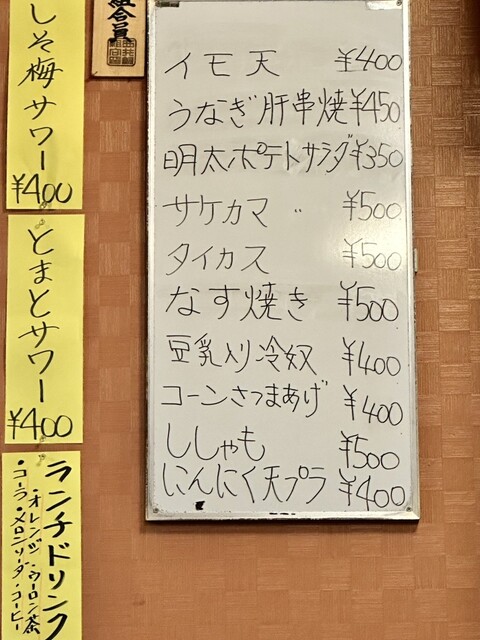 組合員
イモ天 ¥400
うなぎ肝串焼 ¥450
明太ポテトサラダ ¥350
サケカマ 〃 ¥500
タイカス ¥500
なす焼き ¥500
豆乳入り冷奴 ¥400
コーンさつまあげ ¥400
ししゃも ¥500
にんにく天プラ ¥400
しそ梅サワー
¥400
とまとサワー
¥400
ランチドリンク
・オレンジ・ウーロン茶
・コーラ・メロンソーダ・コーヒー